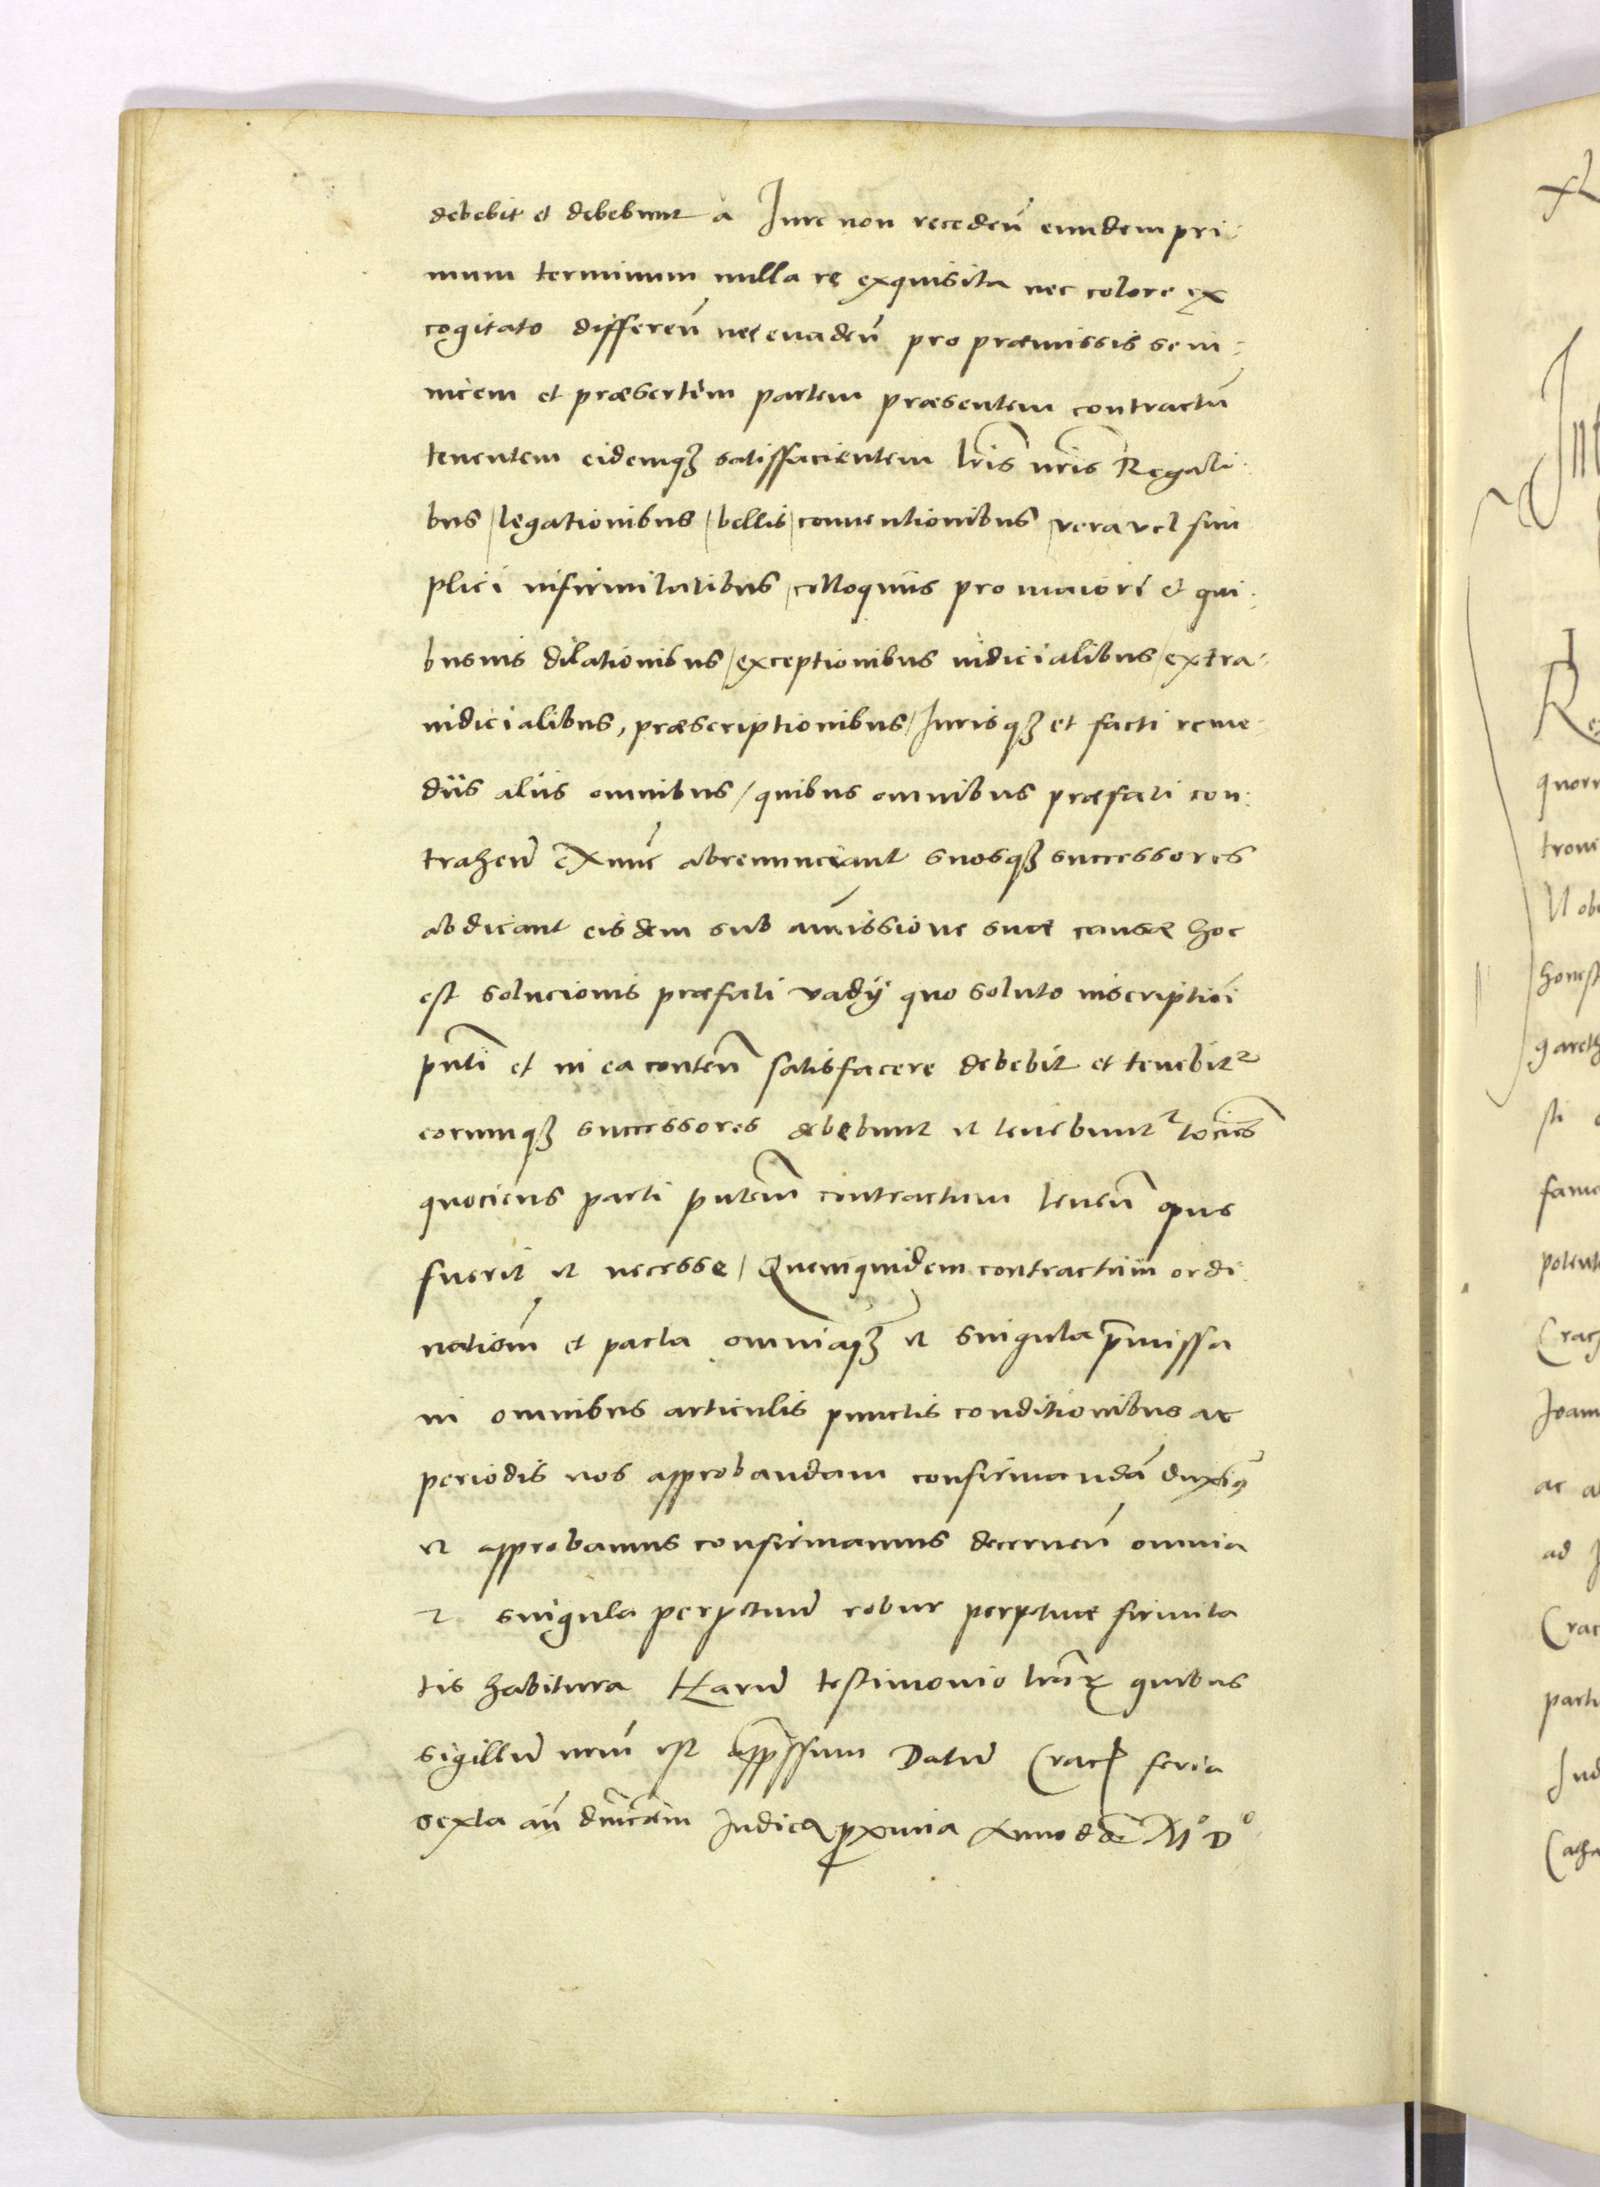 debebit et debebunt a Iure non receden̄ eundem pri-
mum terminum nulla re exquisita nec colore ex
cogitato differen̄ nec euaden̄ pro præmissis se in-
uicem et præsertim partem præsentem contractū
tenentem eidemqꝫ satisfacientem lr̄is nr̄is Regali-
bus / legationibus / bellis / conuentionibus / vera vel sim
plici infirmitatibus / colloquiis pro maiori et qui-
busuis dilationibus / exceptionibus iudicialibus / extra-
iudicialibus, præscriptionibus / Iurisqꝫ et facti reme-
diis aliis omnibus / quibus omnibus præfati con-
trahen̄ ex nūc abrenunciant suosqꝫ successores
abdicant eisdem sub amissione suæ causæ hoc
est solucionis præfati vadij quo soluto inscriptioī
pn̄ti et in ea conten̄ satisfacere debebit et tenebitᷣ
eorumqꝫ successores debebunt et tenebuntᷣ tocies̄
quociens parti pn̄tem̄ contractum tenen̄ opus
fuerit et necesse / Quemquidem contractum ordi
natiom̄ et pacta omniaqꝫ et singula p̄missa
in omnibus articulis punctis conditionibus ac
periodis nos approbandam confirmandā duximꝰ
et approbamus confirmamus decernen̄ omnia
et singula perpetuū robur perpetuæ firmita
tis habitura Harū testimonio lr̄aꝝ quibus
sigillū nr̄m est appr̄ssum Datū Crac̄ feria
sexta an̄ dn̄icam Iudica proxima Anno dn̄i Mº Dº